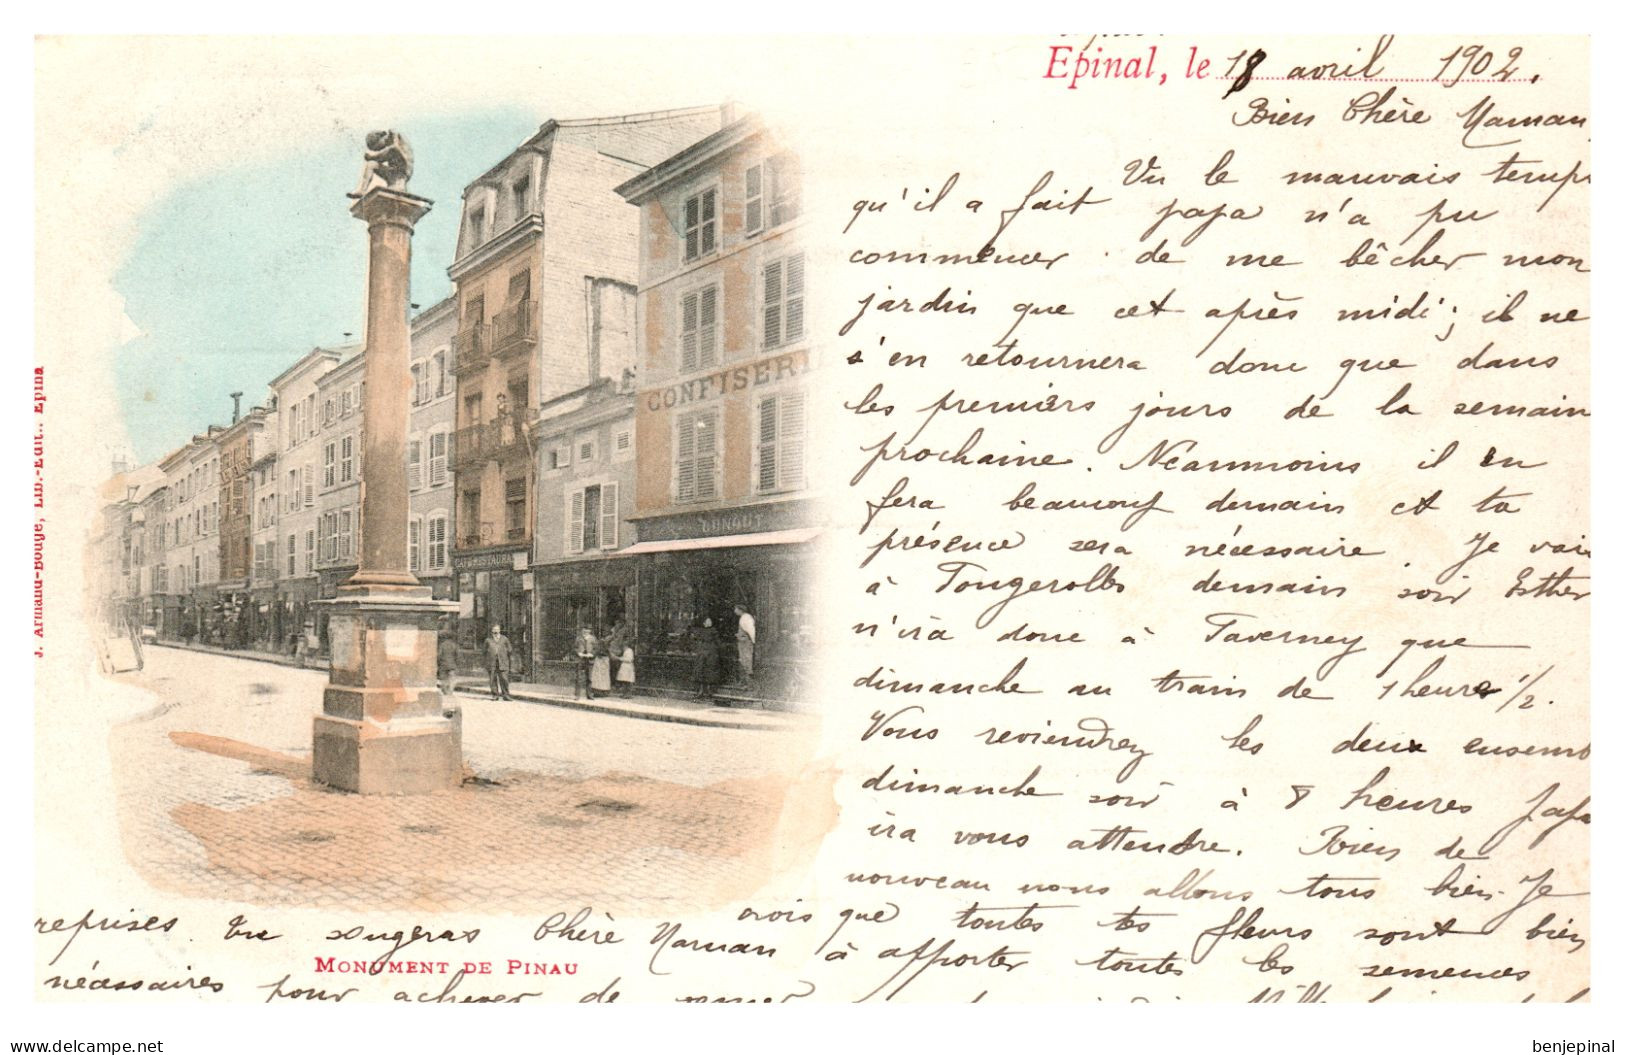 Epinal, le 18 avril 1902.
Bien Chère Maman
Vu le mauvais temps
qu'il a fait papa n'a pu
commencer de me bêcher mon
jardin que cet après midi; il ne
s'en retournera donc que dans
les premiers jours de la semain
prochaine. Néanmoins il en
fera beaucoup demain et ta
présence sera nécessaire. Je vais
à Fougerolles demain soir Esther
n'ira donc à Faverney que
dimanche au train de 1 heure 1/2.
Vous reviendrez les deux ensemb
dimanche soir à 8 heures papa
ira vous attendre. Rien de
nouveau nous allons tous bien. Je
crois que toutes tes fleurs sont bien
reprises. Tu songeras Chère Maman
à apporter toutes les semences
nécessaires pour achever de semer
MONUMENT DE PINAU
J. Armand-Bouge, Lib.-Edit.. Epina
CONFISERI
CUNAUT
delcampe.net
benjepinal